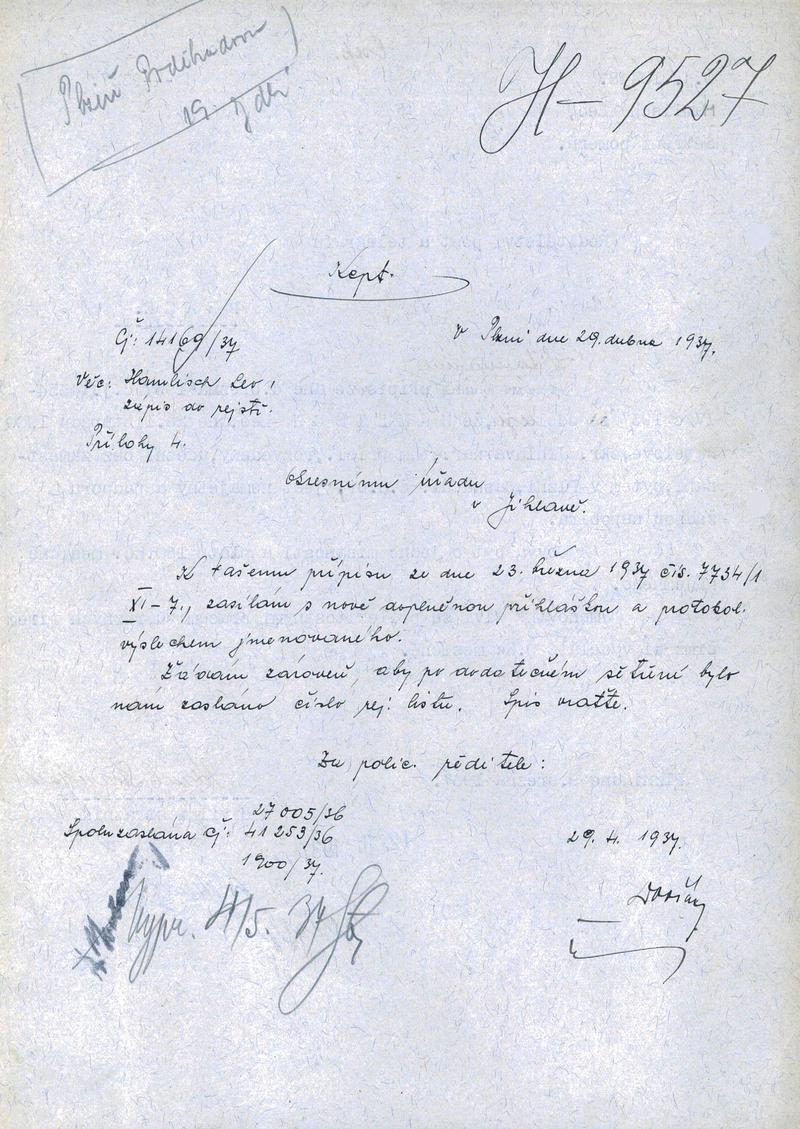 Plzeň
19
H-9527
Kept.
Čj: 14169/37
v Plzni dne 29. dubna 1937.
Věc: Hamlisch Lev!
zápis do rejstř.
Přílohy 4.
Okresnímu úřadu
v Jihlavě.
K Vašemu přípisu ze dne 23. března 1937 čís. 7734/1
XI-7., zasílám s nově doplněnou přihláškou a protokol.
výslechem jmenovaného.
Žádám zároveň, aby po dodatečném šetření bylo
nám zasláno číslo rej. listu. Spis vraťte.
Za polic. ředitele:
27005/36
Spolu zaslána čj: 41253/36
1900/37.
29. 4. 1937.
Vypr. 4/5. 37